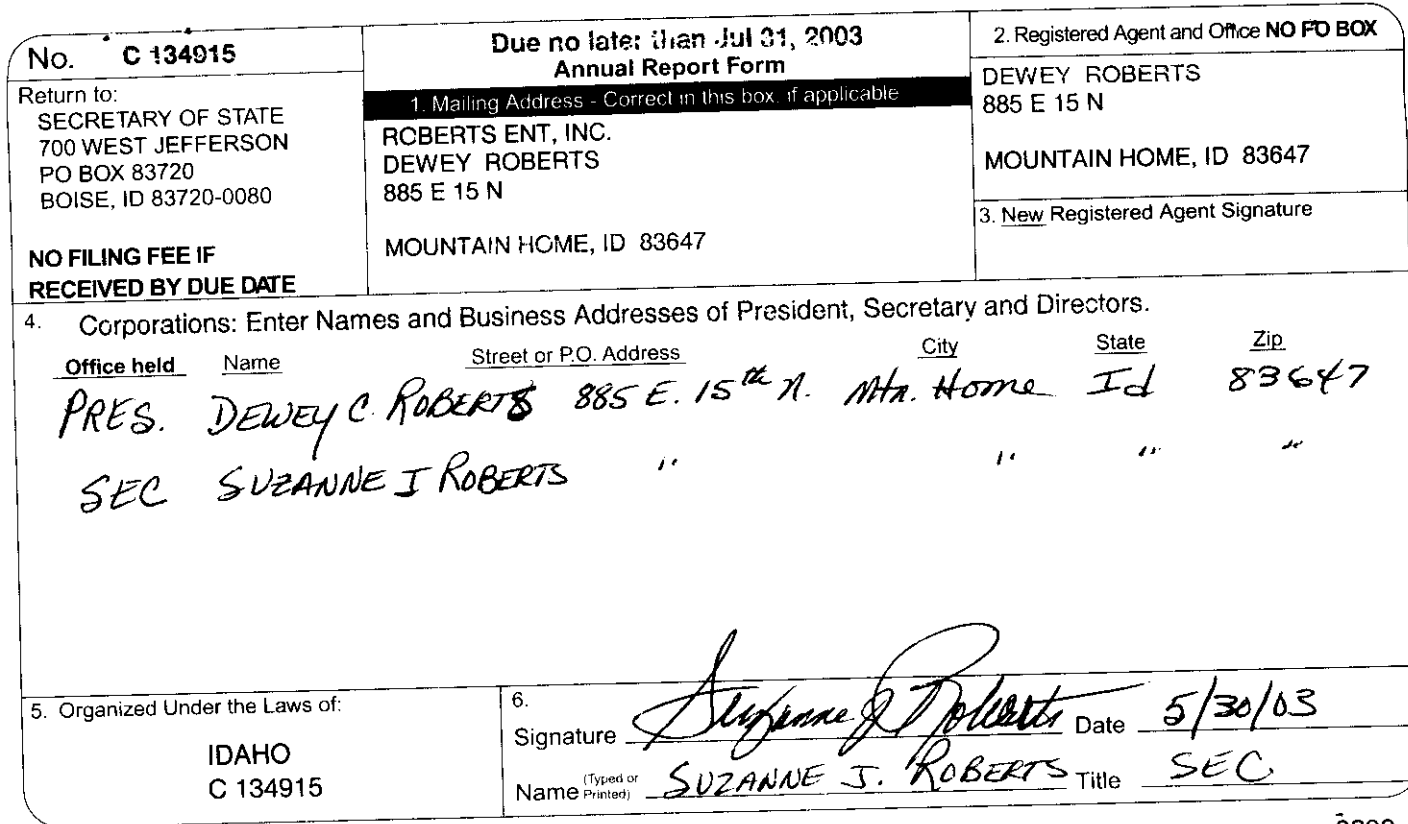 No. C 134915
Return to:
SECRETARY OF STATE
700 WEST JEFFERSON
PO BOX 83720
BOISE, ID 83720-0080
NO FILING FEE IF
RECEIVED BY DUE DATE
Due no later than Jul 31, 2003
Annual Report Form
1. Mailing Address - Correct in this box, if applicable
ROBERTS ENT, INC.
DEWEY ROBERTS
885 E 15 N
MOUNTAIN HOME, ID 83647
2. Registered Agent and Office NO PO BOX
DEWEY ROBERTS
885 E 15 N
MOUNTAIN HOME, ID 83647
3. New Registered Agent Signature
4. Corporations: Enter Names and Business Addresses of President, Secretary and Directors.
Office held Name Street or P.O. Address City State Zip
PRES. DEWEY C. ROBERTS 885 E. 15th N. Mtn. Home Id 83647
SEC SUZANNE J ROBERTS " " " "
5. Organized Under the Laws of:
IDAHO
C 134915
6.
Signature Suzanne J Roberts Date 5/30/03
Name (Typed or Printed) SUZANNE J. ROBERTS Title SEC.